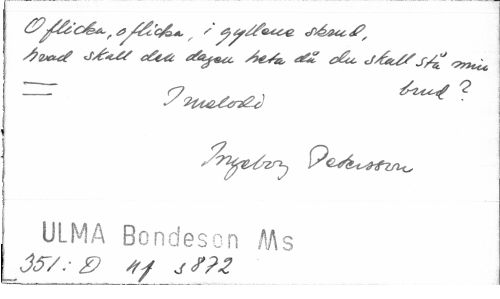 O flicka, o flicka, i gyllene skrud,
hvad skall den dagen heta då du skall stå min
brud?
1 melodi
Ingeborg Petersson
ULMA Bondeson Ms
351:D nf s 872